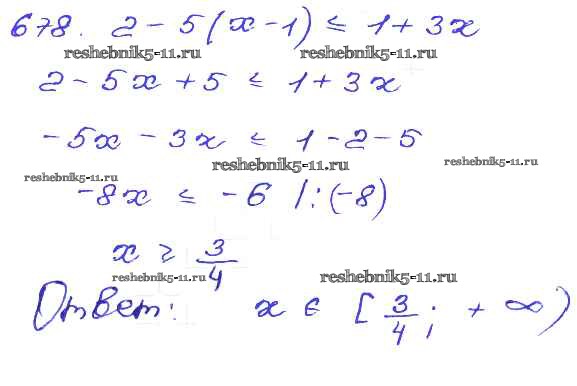 678. 2 - 5(x - 1) ≤ 1 + 3x
reshebnik5-11.ru reshebnik5-11.ru
2 - 5x + 5 ≤ 1 + 3x
-5x - 3x ≤ 1 - 2 - 5
reshebnik5-11.ru reshebnik5-11.ru
reshebnik5-11.ru
-8x ≤ -6 |:(-8)
x ≥ 3/4
reshebnik5-11.ru reshebnik5-11.ru
Ответ: x ∈ [3/4; +∞)